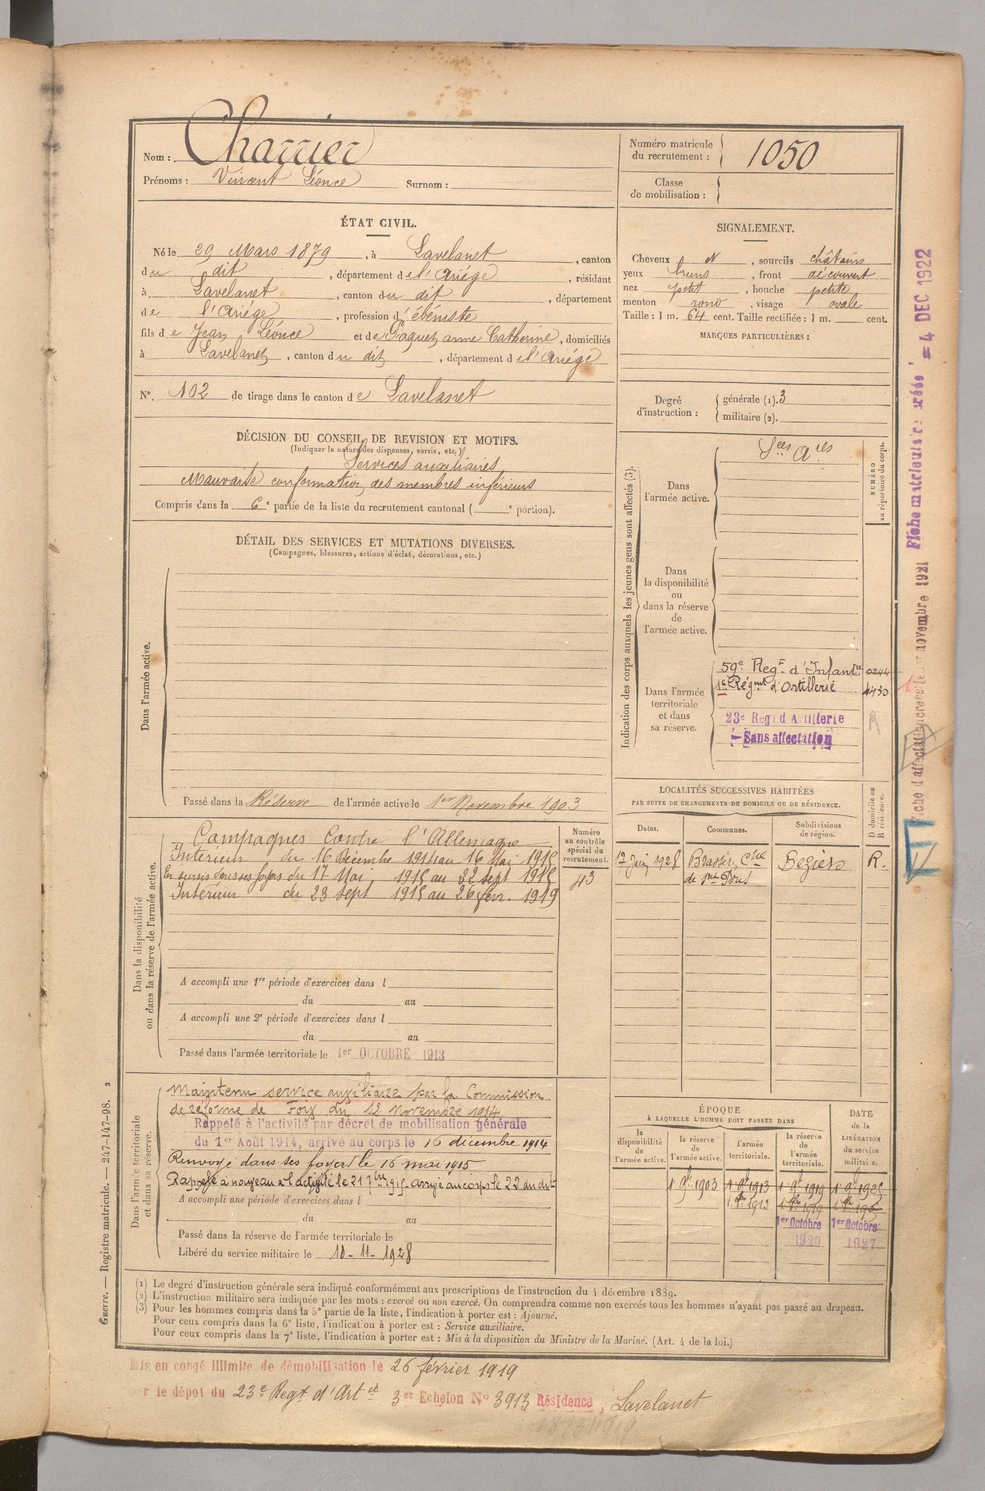 Nom : Charrier
Prénoms : Vincent Léonce Surnom :
Numéro matricule du recrutement : 1050
Classe de mobilisation :
ÉTAT CIVIL.
Né le 29 Mars 1879, à Lavelanet, canton
du dit, département de l'Ariège, résidant
à Lavelanet, canton du dit, département
de l'Ariège, profession d'ébéniste
fils de Jean Léonce et de Paquet anne Catherine, domiciliés
à Lavelanet, canton du dit, département de l'Ariège
N°. 102 de tirage dans le canton de Lavelanet
SIGNALEMENT.
Cheveux N, sourcils châtains
yeux bruns, front découvert
nez petit, bouche petite
menton rond, visage ovale
Taille : 1 m. 64 cent. Taille rectifiée : 1 m. cent.
MARQUES PARTICULIÈRES :
Degré d'instruction : générale (1). 3
militaire (2).
DÉCISION DU CONSEIL DE REVISION ET MOTIFS.
(Indiquer la nature des dispenses, sursis, etc.)
Services auxiliaires
Mauvaise conformation des membres inférieurs
Compris dans la 6e partie de la liste du recrutement cantonal ( e portion).
DÉTAIL DES SERVICES ET MUTATIONS DIVERSES.
(Campagnes, blessures, actions d'éclat, décorations, etc.)
Dans l'armée active.
Passé dans la Réserve de l'armée active le 1er Novembre 1903
Indication des corps auxquels les jeunes gens sont affectés (3).
NUMÉRO au répertoire du corps.
Dans l'armée active.
Sces Ares
Dans la disponibilité ou dans la réserve de l'armée active.
Dans l'armée territoriale et dans sa réserve.
59e Regt d'Infantie 0244
1e Régmt d'Artillerie 4430
23e Regt d'Artillerie
Sans affectation
LOCALITÉS SUCCESSIVES HABITÉES
PAR SUITE DE CHANGEMENTS DE DOMICILE OU DE RÉSIDENCE.
Dates. Communes. Subdivisions de région. D domicile ou R résidence.
17 Juin 1928 Béziers R.
Dans la disponibilité ou dans la réserve de l'armée active.
Numéro au contrôle spécial du recrutement.
43
Campagnes Contre l'Allemagne
Intérieur du 16 Décembre 1914 au 16 Mai 1915
En sursis dans ses foyers du 17 Mai 1915 au 22 Sept 1915
Intérieur du 23 Sept 1915 au 26 févr. 1919
A accompli une 1re période d'exercices dans l
du au
A accompli une 2e période d'exercices dans l
du au
Passé dans l'armée territoriale le 1er OCTOBRE 1913
Dans l'armée territoriale et dans sa réserve.
Maintenu service auxiliaire par la Commission
de réforme de Foix du 12 Novembre 1914
Rappelé à l'activité par décret de mobilisation générale
du 1er Août 1914, arrivé au corps le 16 décembre 1914
Renvoyé dans ses foyers le 16 mai 1915
Rappelé à nouveau à l'activité le 21 7bre 1915 arrivé au corps le 22 au dit
A accompli une période d'exercices dans l
du au
Passé dans la réserve de l'armée territoriale le
Libéré du service militaire le 10-11-1928
ÉPOQUE
À LAQUELLE L'HOMME DOIT PASSER DANS
la disponibilité de l'armée active. la réserve de l'armée active. l'armée territoriale. la réserve de l'armée territoriale. DATE de la LIBÉRATION du service militaire.
1 9bre 1903 1 9bre 1913 1 9bre 1919
1er Octobre 1920 1er Octobre 1927
(1) Le degré d'instruction générale sera indiqué conformément aux prescriptions de l'instruction du 4 décembre 1889.
(2) L'instruction militaire sera indiquée par les mots : exercé ou non exercé. On comprendra comme non exercés tous les hommes n'ayant pas passé au drapeau.
(3) Pour les hommes compris dans la 5e partie de la liste, l'indication à porter est : Ajourné.
Pour ceux compris dans la 6e liste, l'indication à porter est : Service auxiliaire.
Pour ceux compris dans la 7e liste, l'indication à porter est : Mis à la disposition du Ministre de la Marine. (Art. 4 de la loi.)
Mis en congé illimité de démobilisation le 26 février 1919
r le dépot du 23e Regt d'Artie 3er Echelon N° 3913 Résidence, Lavelanet
Guerre. — Registre matricule. — 247-147-98. 2
Fiche matriculaire créée = 4 DEC 1922
novembre 1921